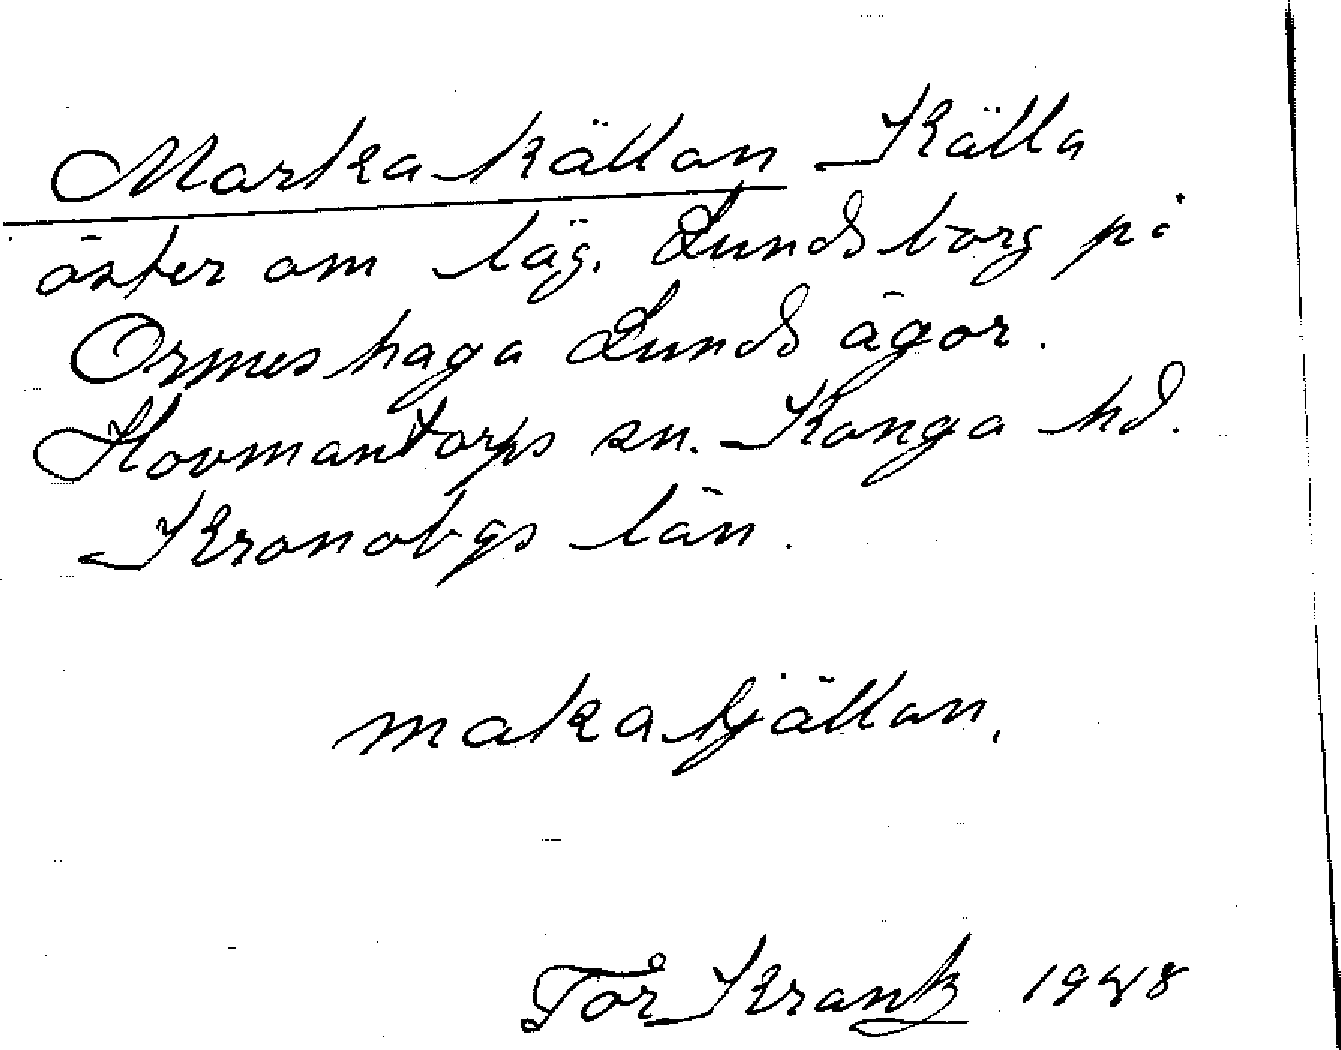 Marka källan Källa
öster om läg. Lundsborg på
Ormeshaga Lunds ägor.
Hovmantorps sn. Konga hd.
Kronobgs län.
maka kjällan.
Tor Krantz 1948